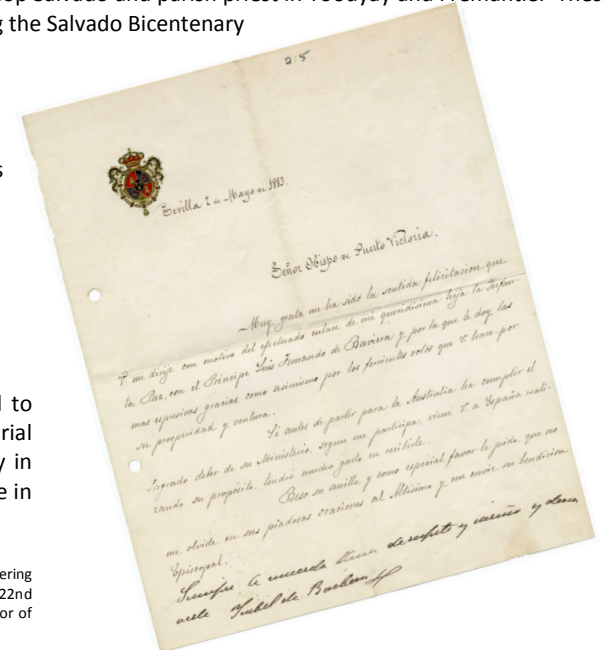 op Salvado and parish priest in Toodyay and Fremantle. Thes
g the Salvado Bicentenary
s
l to
rial
y in
e in
ering
22nd
or of
2:5
Sevilla 2 de Mayo de 1883.
Señor Obispo de Puerto Victoria.
Muy grata me ha sido la sentida felicitacion que
V. me dirije con motivo del efectuado enlace de mi queridisima hija la Infan-
ta Paz, con el Principe Luis Fernando de Baviera y por la que le doy las
mas espresivas gracias como asimismo por los fervientes votos que V. hace por
su prosperidad y ventura.
Si antes de partir para la Australia ha cumplir el
sagrado deber de su Ministerio, segun me participa, viene V. a España reali-
zando su propósito, tendré mucho gusto en recibirle.
Beso su anillo y como especial favor le pido, que no
me olvide en sus piadosas oraciones al Altisimo y me envie su bendicion
Episcopal.
Siempre le recuerda llena de respeto y cariño y desea
verle Isabel de Borbon